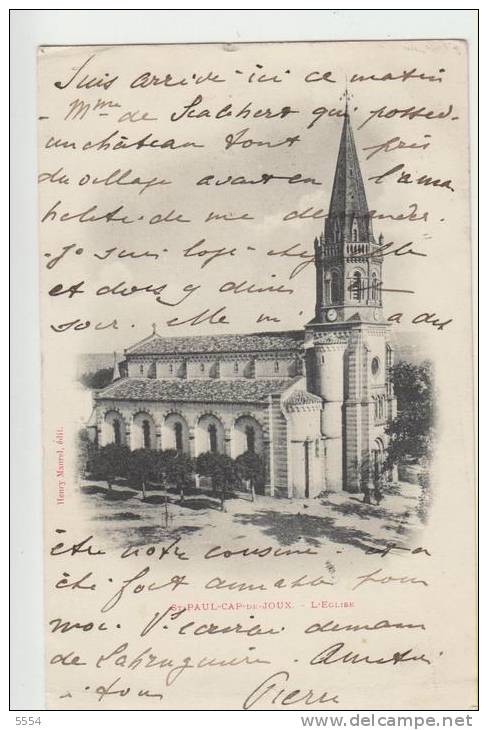 Suis arrivé ici ce matin
Mme de Scalibert qui possed.
un château tout près
du village avait en l'ama
bilité de me demander.
Je suis logé chez elle
et dois y diner ce
soir. elle m'a dit
être notre cousine et a
été fort aimable pour
moi. J'écrirai demain
de Labruguière. Amitiés
à tous Pierre
Henry Maurel, édit.
St-PAUL-CAP-DE-JOUX. - L'EGLISE
5554
http://www.delcampe.net